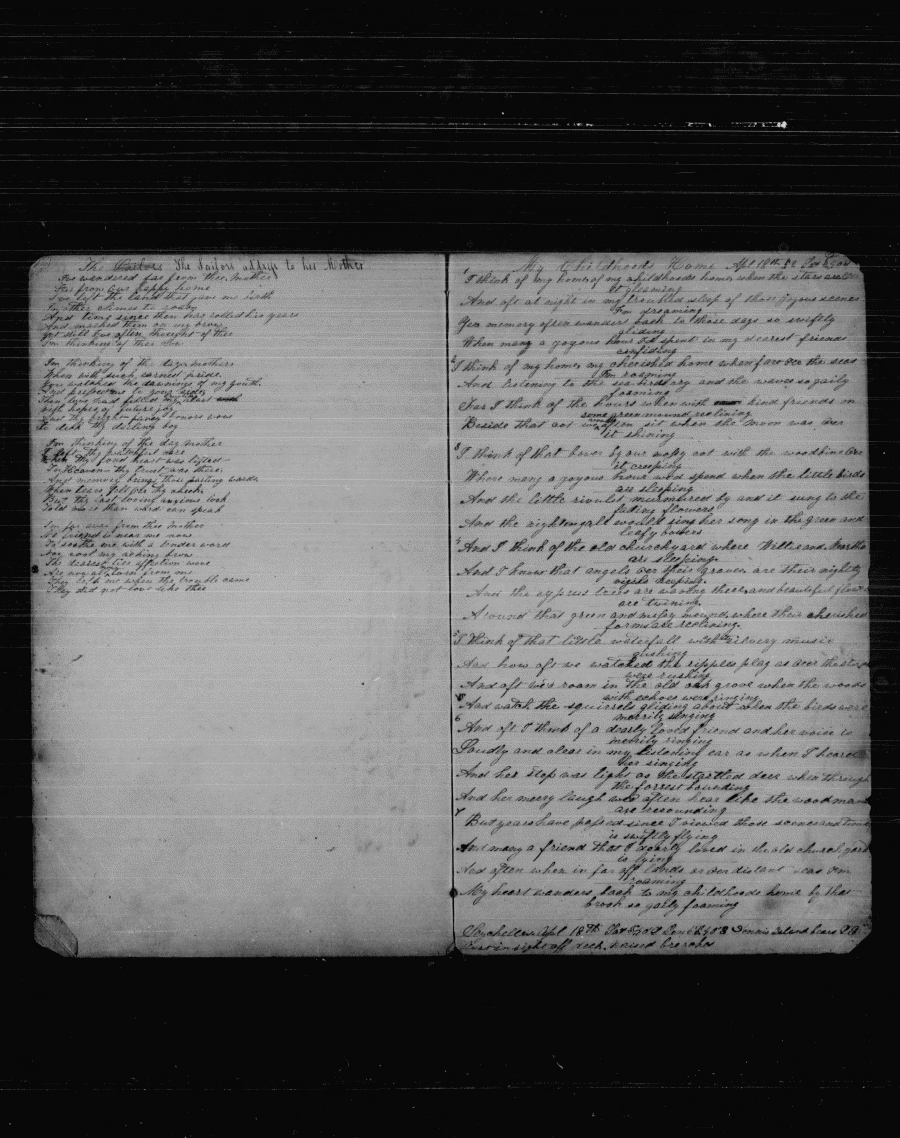 The Sailors The Sailors address to his Mother
I've wandered far from thee, Mother
Far from our happy home
I've left the land that gave me birth
In other climes to roam
And time since then has rolled his years
And marked them on my brow
Yet still I've often thought of thee
I'm thinking of thee now
I'm thinking of the days mother
When with such earnest pride
You watched the dawnings of my youth
And pressed me to your side
Then love had filled thy heart
With hopes of future joy
And thy bright fancy honors wove
To deck thy darling boy
I'm thinking of the day Mother
I left thy watchful care
When thy fond heart was lifted
To Heaven thy trust was there
And memory brings those parting words
When tears fell o'er thy cheek
But thy last loving anxious look
Told more than word can speak
I'm far away from thee Mother
No friend is near me now
To soothe me with a tender word
Nor cool my aching brow
The dearest ties affection wove
Are now all torn from me
They left me when the trouble came
They did not love like thee
My Childhoods Home Apl 18th
1 I think of my home, of my childhoods home, when the stars are over
it gleaming
And oft at night in my troubled sleep of those joyous scenes
I'm dreaming
Yea memory often wanders back to those days so swiftly
gliding
When many a joyous hour I'd spent in my dearest friends
confiding
2 I think of my home, my cherished home when far over the seas
I'm roaming
And listening to the sea birds cry and the waves so gaily
foaming
For I think of the hours when with kind friends on
some green mound reclining
Beside that cot we would often sit when the Moon was over
it shining
3 I think of that bower by our mossy cot with the woodbine over
it creeping
Where many a joyous hour we'd spend when the little birds
are sleeping
And the little rivulet murmured by and it sung to the
fading flowers
And the nightingale would sing her song in the green and
leafy bowers
4 And I think of the old churchyard where Willie and Martha
are sleeping
And I know that angels over their graves are their nightly
vigils keeping
And the cypress trees are waving there, and beautiful flowers
are twining
Around that green and mossy mound, where their cherished
forms are reclining.
5 I think of that little waterfall with silvery music
gushing
And how oft we watched the ripples play as over the stones
were rushing
And oft we'd roam in the old oak grove when the woods
with echoes were ringing
And watch the squirrels gliding about when the birds were
merrily singing
6 And oft I think of a dearly loved friend and her voice is
merrily ringing
Loudly and clear in my listening ear as when I heard
her singing
And her step was light as the startled deer when through
the forrest bounding
And her merry laugh we often hear like the woodman
are resounding
7 But years have passed since I viewed those scenes and time
is swiftly flying
And many a friend that I dearly loved in the old church yard
is lying
And often when in far off lands or over distant seas I'm
roaming
My heart wanders back to my childhoods home by that
brook so gaily foaming
Seychelles, Apl 18th Dennis Island bears